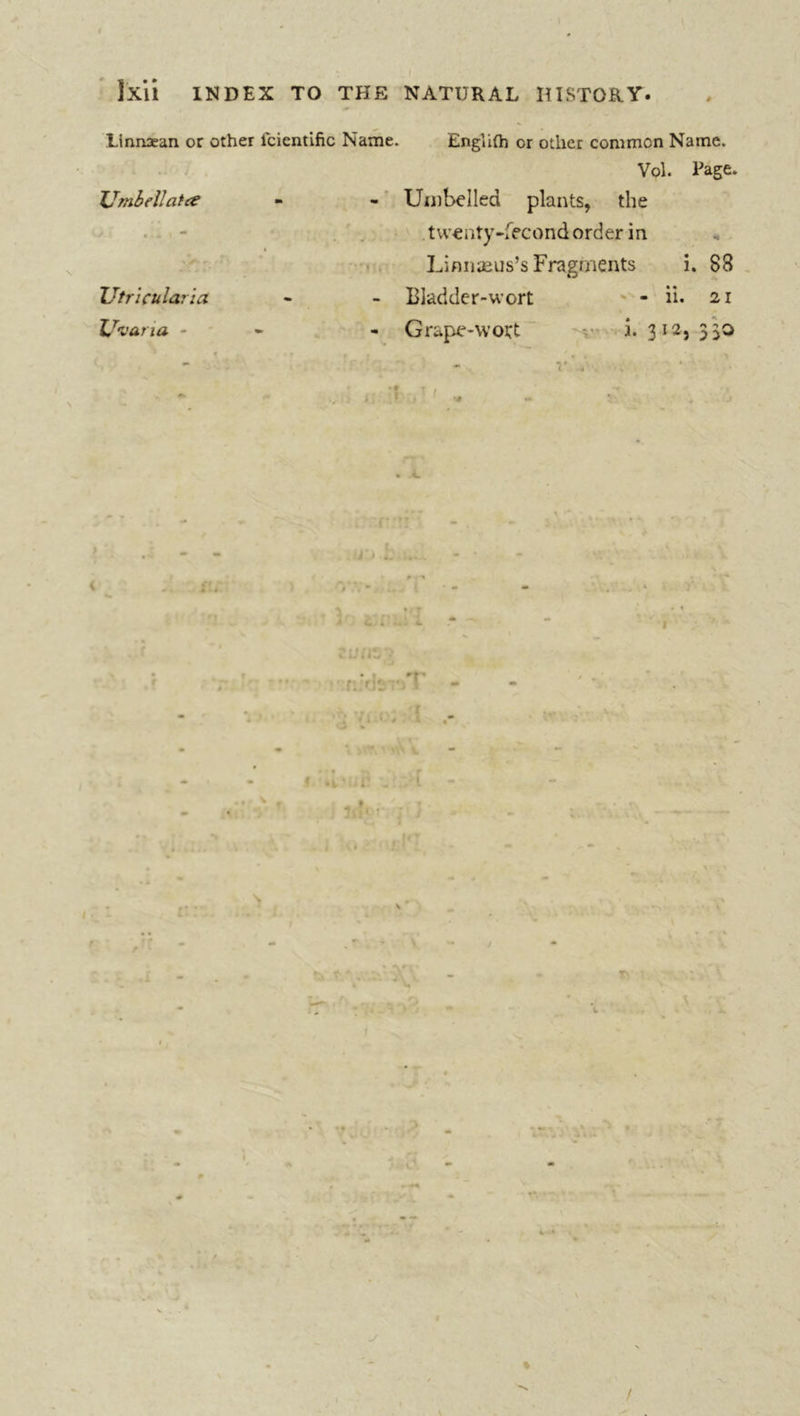 lxii INDEX TO THE NATURAL HISTORY.
Linnæan or other ſcientific Name. Engliſh or other common Name.
Vol. Page.
Umbellatæ - - Umbelled plants, the
twenty-ſecond order in
Linnæus’s Fragments i. 88
Utricularia - - Bladder-wort - ii. 21
Uvaria - - - Grape-wort i. 312, 330